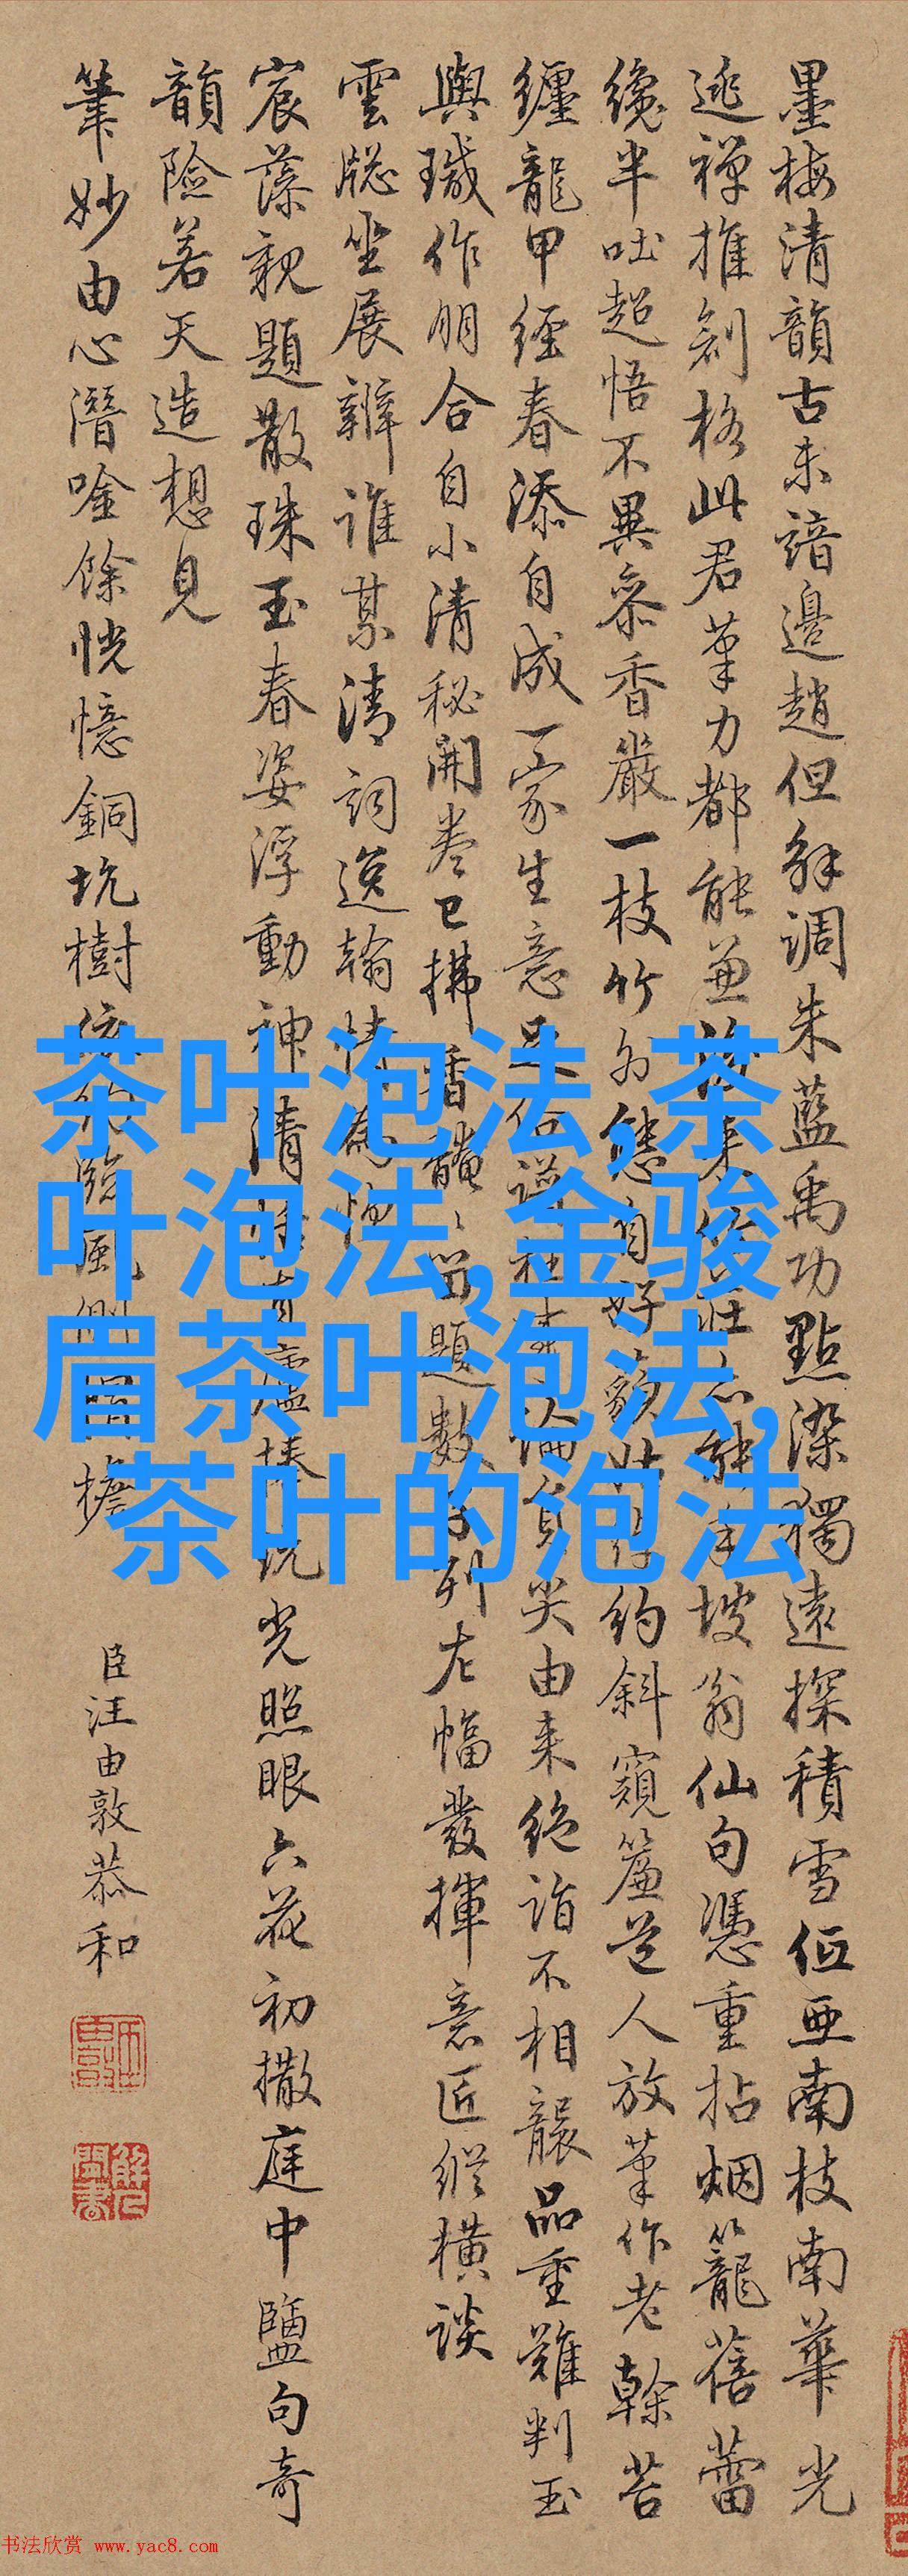 墨梅清韻古未諳邊趙但解調朱藍禹功點染獨遠探積雪低亞南枝南華光
逃禪推創格此君筆力都能兼坡翁仙句憑重拈烟籠舊蕾
纔半吐超悟不異參香嚴一枝竹外態自好約斜窺簾道人放筆作老榦苔
纏龍甲經春添自成一家生意足由来絶詣不相襲品重難判玉
與瑊作朋合自小清秘開卷已拂香題數列左幅發揮意匠縱橫談
雲牕坐展辨誰某清詞逸翰
宸藻親題散珠玉春姿浮動神清光照眼六花初撒庭中鹽句奇
韻險若天造想見
筆妙由心潛唫餘恍憶銅坑樹檐
臣汪由敦恭和
茶叶泡法,茶
叶泡法,金骏
眉茶叶泡法,
茶叶的泡法
书法欣赏 www.yac8.com